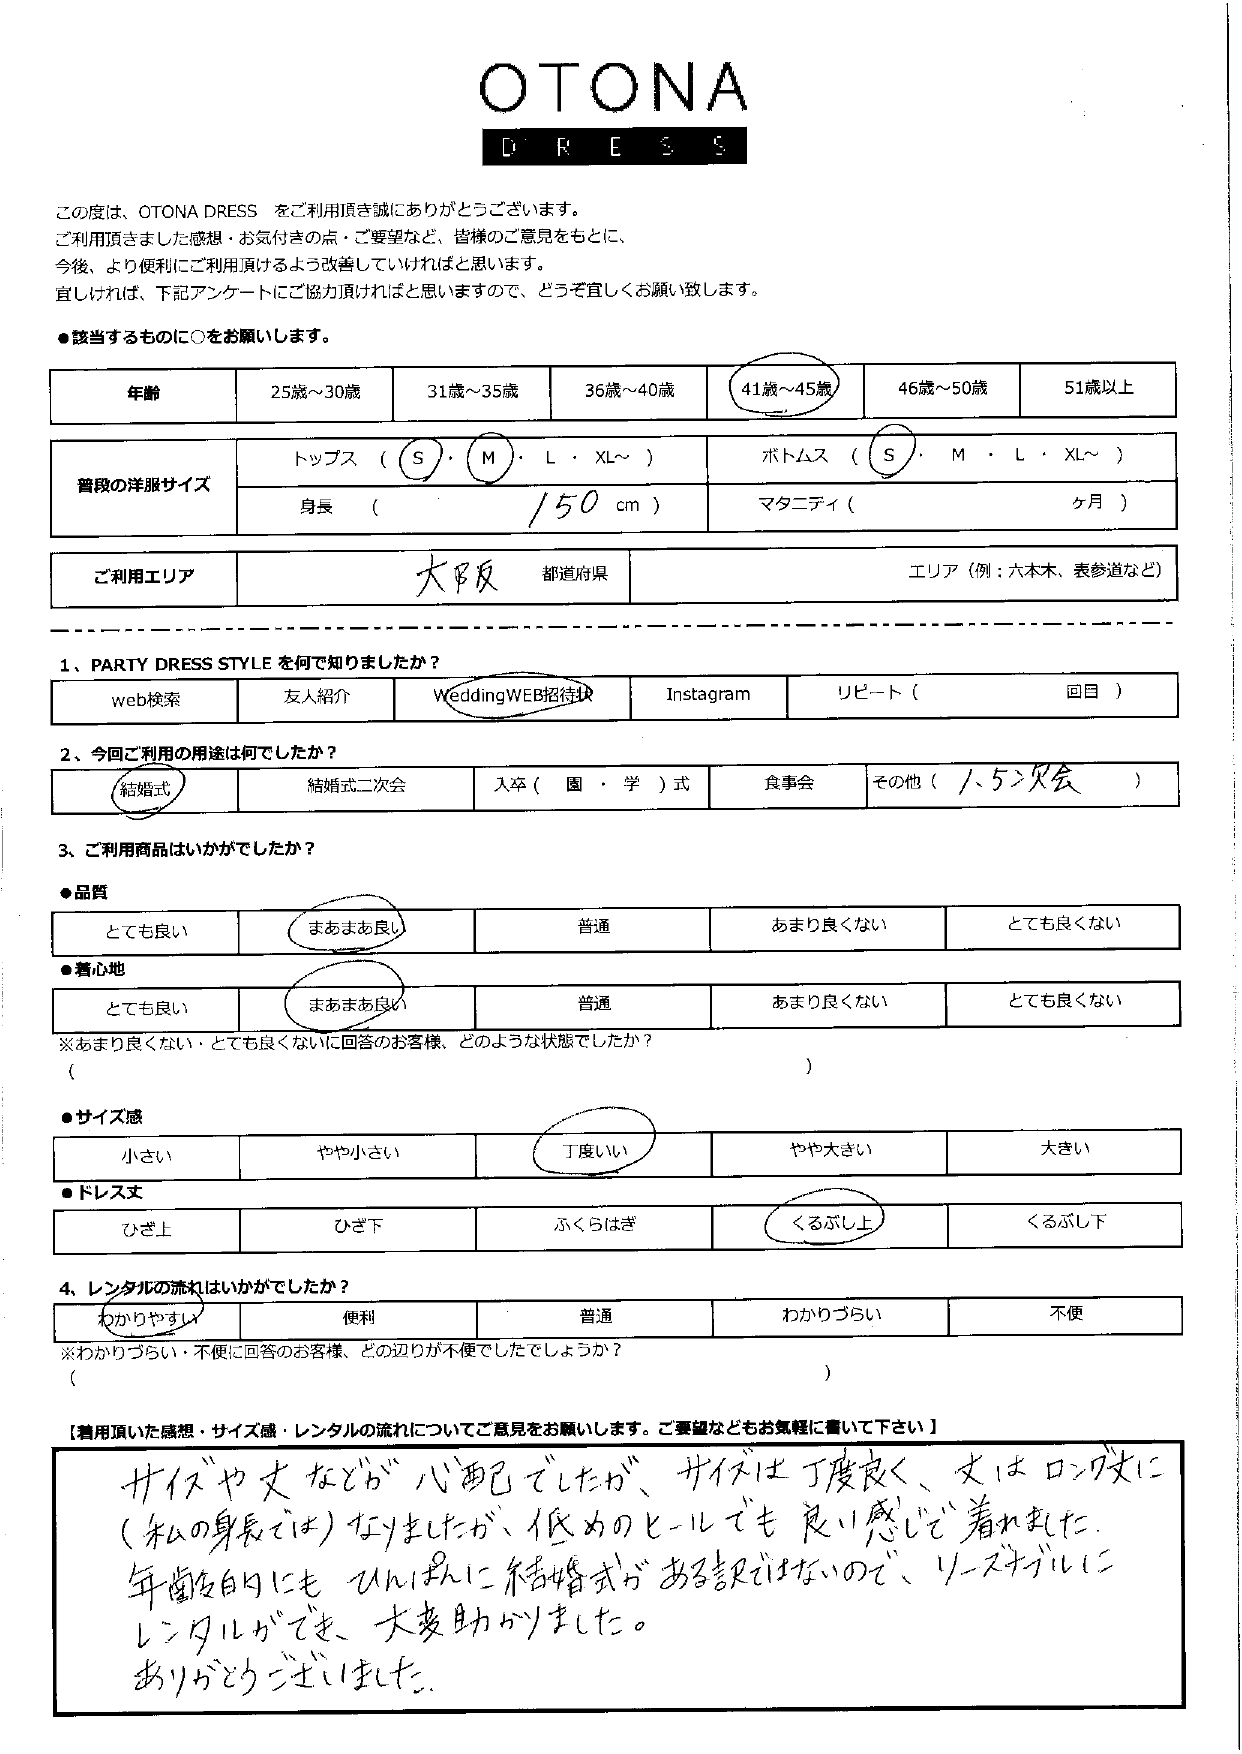 OTONA
DRESS
この度は、OTONA DRESS をご利用頂き誠にありがとうございます。
ご利用頂きました感想・お気付きの点・ご要望など、皆様のご意見をもとに、
今後、より便利にご利用頂けるよう改善していければと思います。
宜しければ、下記アンケートにご協力頂ければと思いますので、どうぞ宜しくお願い致します。
●該当するものに○をお願いします。
年齢 25歳～30歳 31歳～35歳 36歳～40歳 41歳～45歳 46歳～50歳 51歳以上
普段の洋服サイズ トップス ( S ・ M ・ L ・ XL～ ) ボトムス ( S ・ M ・ L ・ XL～ )
身長 ( 150 cm ) マタニティ ( ヶ月 )
ご利用エリア 大阪 都道府県 エリア（例：六本木、表参道など）
1、PARTY DRESS STYLE を何で知りましたか？
web検索 友人紹介 WeddingWEB招待状 Instagram リピート ( 回目 )
2、今回ご利用の用途は何でしたか？
結婚式 結婚式二次会 入卒 ( 園 ・ 学 ) 式 食事会 その他 ( 1.5次会 )
3、ご利用商品はいかがでしたか？
●品質
とても良い まあまあ良い 普通 あまり良くない とても良くない
●着心地
とても良い まあまあ良い 普通 あまり良くない とても良くない
※あまり良くない・とても良くないに回答のお客様、どのような状態でしたか？
( )
●サイズ感
小さい やや小さい 丁度いい やや大きい 大きい
●ドレス丈
ひざ上 ひざ下 ふくらはぎ くるぶし上 くるぶし下
4、レンタルの流れはいかがでしたか？
わかりやすい 便利 普通 わかりづらい 不便
※わかりづらい・不便に回答のお客様、どの辺りが不便でしたでしょうか？
( )
【着用頂いた感想・サイズ感・レンタルの流れについてご意見をお願いします。ご要望などもお気軽に書いて下さい】
サイズや丈などが心配でしたが、サイズは丁度良く、丈はロング丈に
（私の身長では）なりましたが、低めのヒールでも良い感じで着れました.
年齢的にもひんぱんに結婚式がある訳ではないので、リーズナブルに
レンタルができ、大変助かりました。
ありがとうございました.